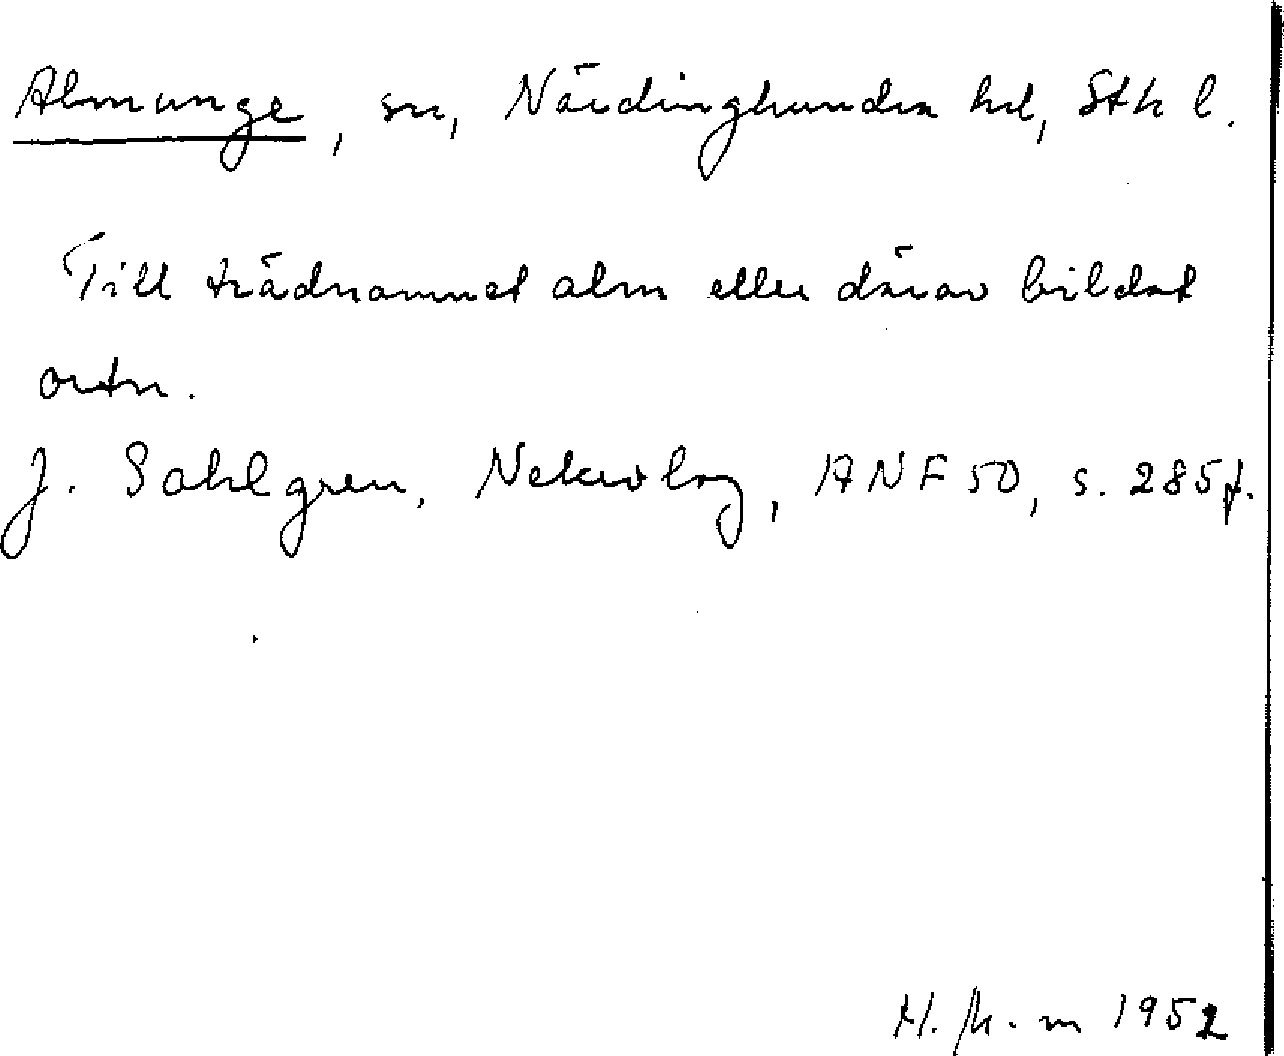 Almunge, sn, Närdinghundra hd, Sth l.
Till trädnamnet alm eller därav bildat
ortn.
J. Sahlgren, Nekrolog, ANF 50, s. 285 f.
1952